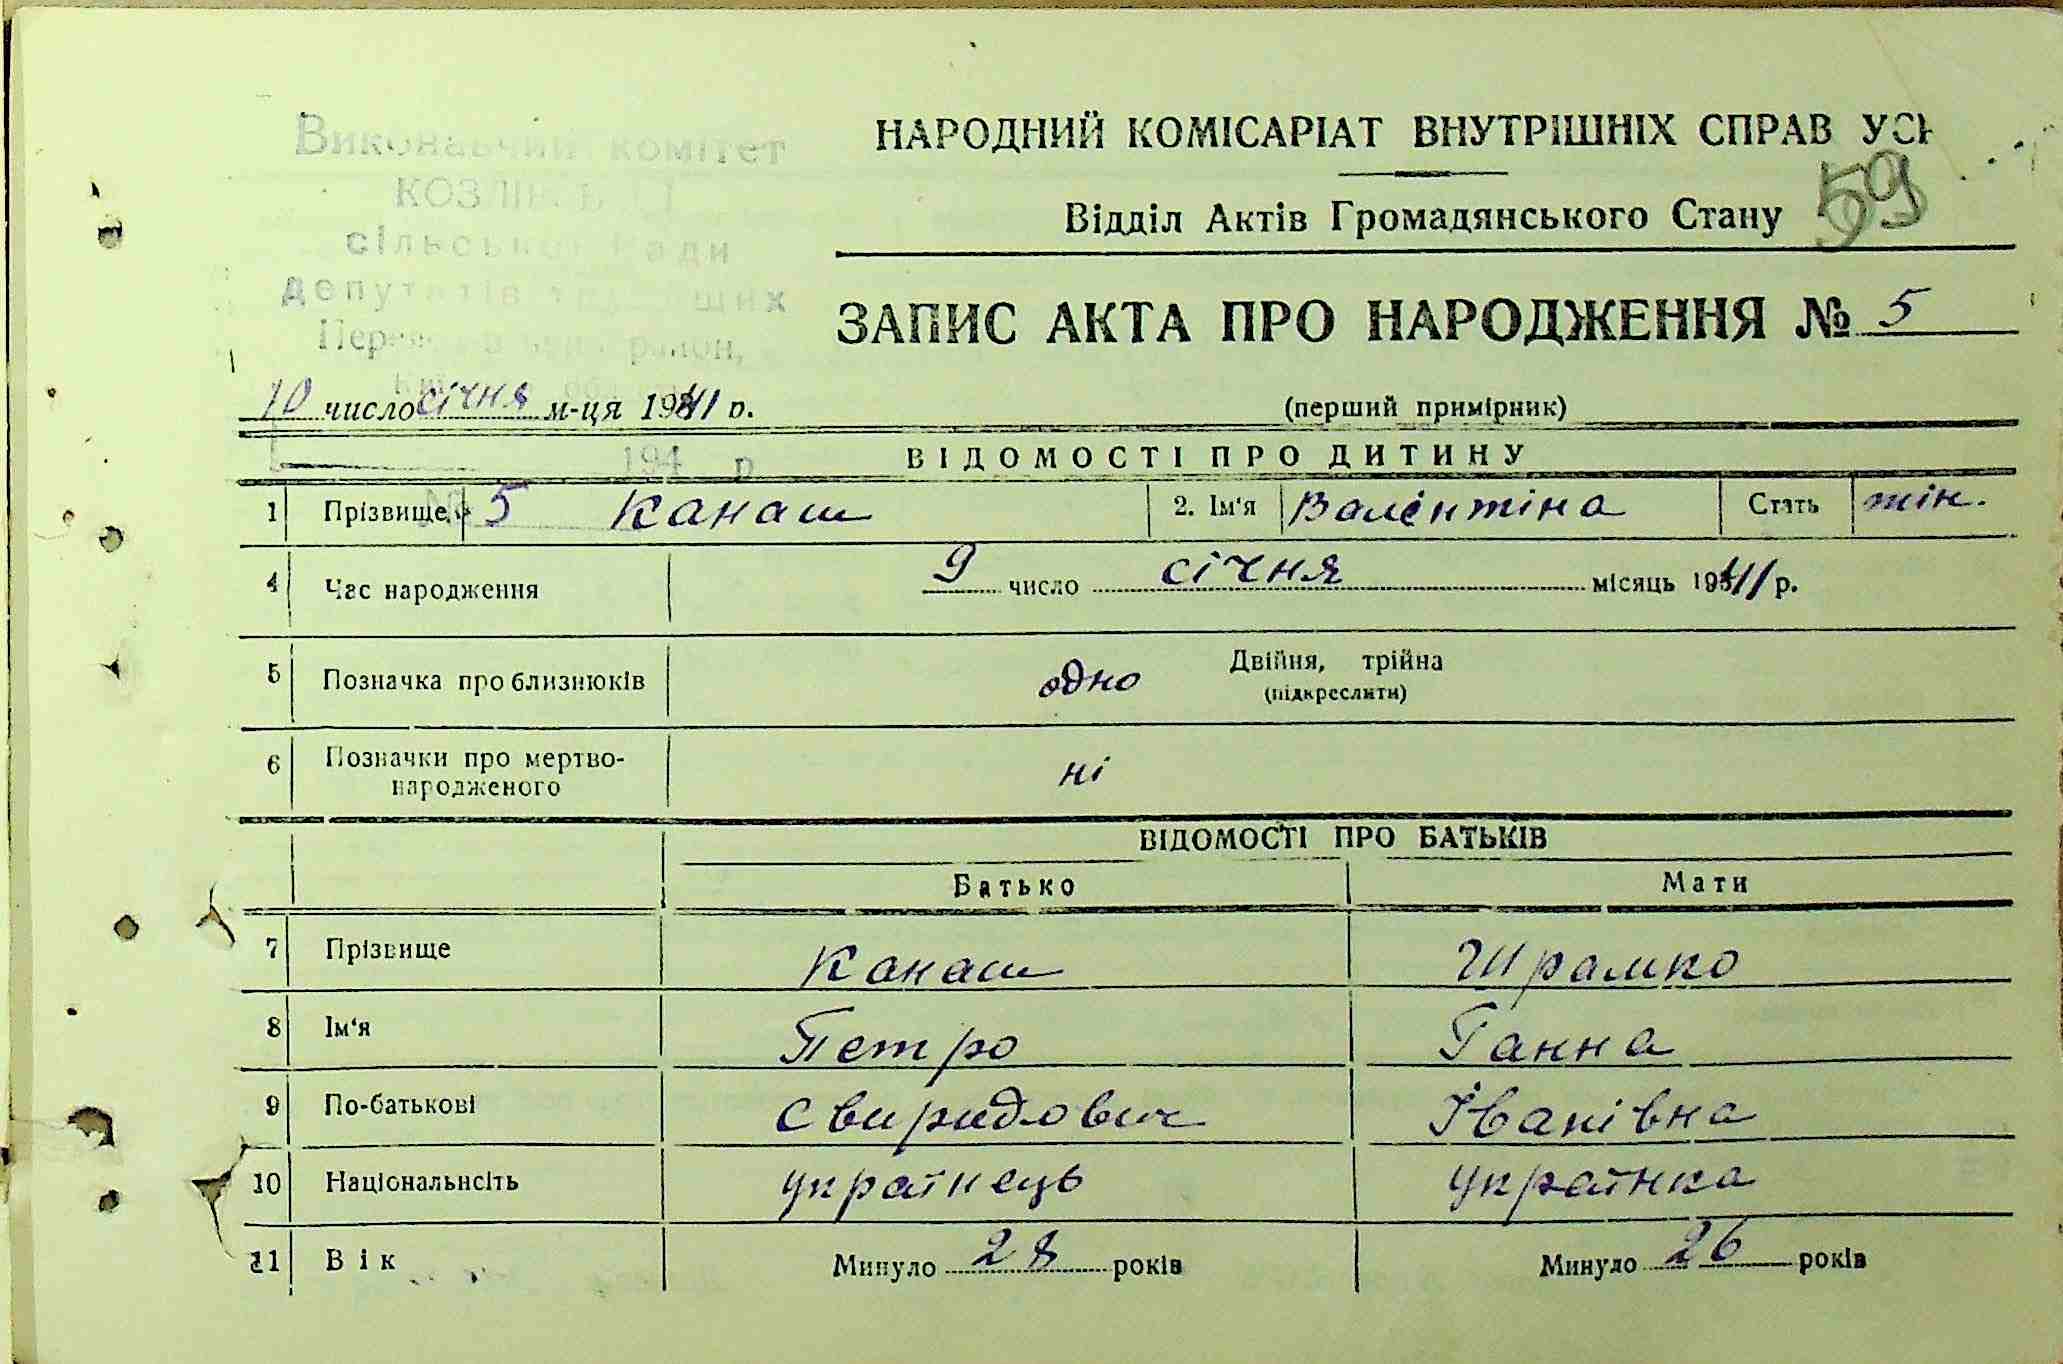 Виконавчий комітет
КОЗЛІВСЬКОЇ
сільської Ради
депутатів трудящих
район,
НАРОДНИЙ КОМІСАРІАТ ВНУТРІШНІХ СПРАВ УСР
59
Відділ Актів Громадянського Стану
ЗАПИС АКТА ПРО НАРОДЖЕННЯ № 5
10 число січня м-ця 1941 р.
(перший примірник)
194 р
ВІДОМОСТІ ПРО ДИТИНУ
1 Прізвище № 5 Канаш 2. Ім'я Валентіна Стать жін.
4 Час народження 9 число січня місяць 1941 р.
5 Позначка про близнюків одно Двійня, трійна
(підкреслити)
6 Позначки про мертво-
народженого ні
ВІДОМОСТІ ПРО БАТЬКІВ
Батько Мати
7 Прізвище Канаш Шрамко
8 Ім'я Петро Ганна
9 По-батькові Свиридович Іванівна
10 Національнсіть українець українка
11 Вік Минуло 28 років Минуло 26 років